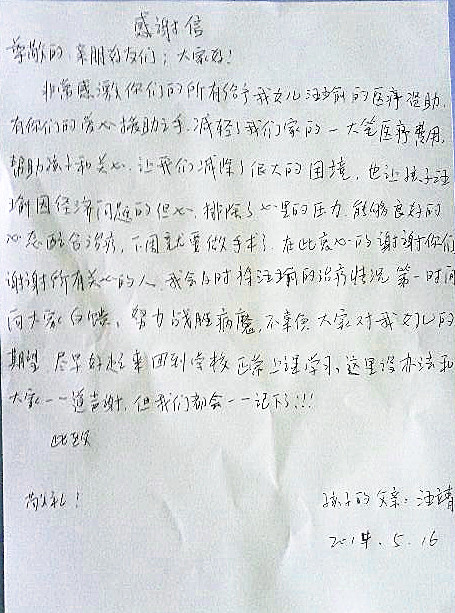 感谢信
尊敬的亲朋好友们；大家好！
非常感激你们的所有给予我女儿汪瑜的医疗资助.
有你们的爱心援助之手,减轻了我们家的一大笔医疗费用,
帮助孩子和关心,让我们减除了很大的困境,也让孩子汪
瑜因经济问题的担心,排除了心里的压力,能够良好的
心态配合治疗,下周就要做手术了,在此衷心的谢谢你们
谢谢所有关心的人,我会及时将汪瑜的治疗情况第一时间
向大家反馈、努力战胜病魔,不辜负大家对我女儿的
期望 尽早好起来回到学校正常上课学习,这里没办法和
大家一一道告谢,但我们都会一一记下!!!
此致
敬礼!
孩子的父亲:汪靖
2014.5.16